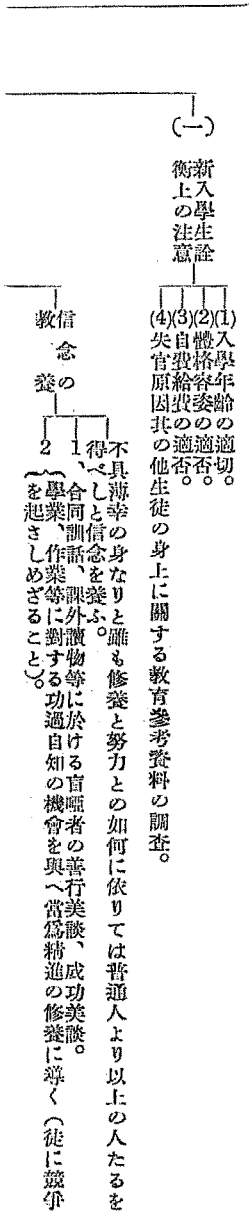 (一)
新入學生詮
衡上の注意
(1)入學年齡の適切。
(2)體格容姿の適否。
(3)自費給費の適否。
(4)失官原因其の他生徒の身上に關する教育參考資料の調査。
信念の
教養
不具薄幸の身なりと雖も修養と努力との如何に依りては普通人より以上の人たるを
得べしと信念を養ふ。
1、合同訓話、課外讀物等に於ける盲啞者の善行美談、成功美談。
2 學業、作業等に對する功過自知の機會を與へ當爲精進の修養に導く(徒に競爭
を起さしめざること)。